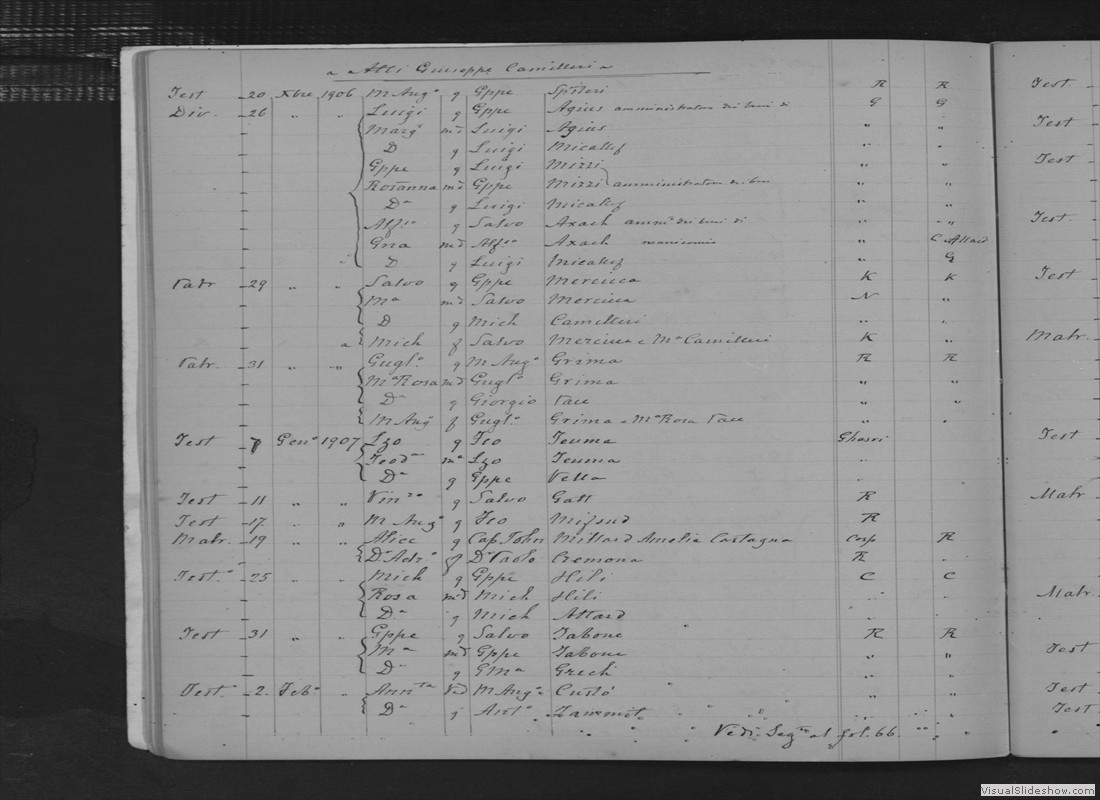 Atti Giuseppe Camilleri
Test 20 Xbre 1906 M Angᵒ g Gppe Spiteri R R Test
Div. 26 " " Luigi g Gppe Agius amministratore dei beni di G G
Margᵃ mᵈ Luigi Agius " " Test
D g Luigi Micallef " "
Gppe g Luigi Mizzi " " Test
Rosanna mᵈ Gppe Mizzi amministratore dei beni " "
Dᵃ g Luigi Micallef " "
Alfˢᵒ g Salvo Axach ammʳᵉ dei beni di " " Test
Gna mᵈ Alfˢᵒ Axach " C. Attard
D g Luigi Micallef " G
29 " " Salvo g Gppe Mercieca K K Test
Mᵃ mᵈ Salvo Mercieca N "
D g Mich Camilleri " "
a Mich f Salvo Mercieca e Mᵃ Camilleri K " Matr.
31 " " Guglᵒ g M Angᵒ Grima R R
Mᵃ Rosa mᵈ Guglᵒ Grima " "
Dᵃ g Giorgio " "
M Angᵒ f Guglᵒ Grima e Mᵃ Rosa " "
Test 7 Genᵒ 1907 Lzo g Fco Teuma Ghasri Test
Teodᵃ mᵃ Lzo Teuma "
Dᵃ g Gppe Vella "
Test 11 " " Vinᶻᵒ g Salvo Gatt R Matr
Test 17 " " M Angᵒ g Fco Mifsud R
Matr 19 " " Alice g Cap. John Millard Amelia Castagna Cosp R
Dʳ Adrᵒ f Dʳ Paolo Cremona R "
Test. 25 " " Mich g Gppe Hili C C
Rosa mᵈ Mich Hili " " Matr.
Dᵃ g Mich Attard " "
Test 31 " " Gppe g Salvo Tabone R R
Mᵃ mᵈ Gppe Tabone " " Test
Dᵃ g Grech " "
Test 2 Febᵒ " Annᵗᵃ Vᵈ M Angᵒ Custó " " Test
Dᵃ g Antᵒ Zammit " " Test
Vedi Segᵗᵒ al fol. 66.
VisualSlideshow.com